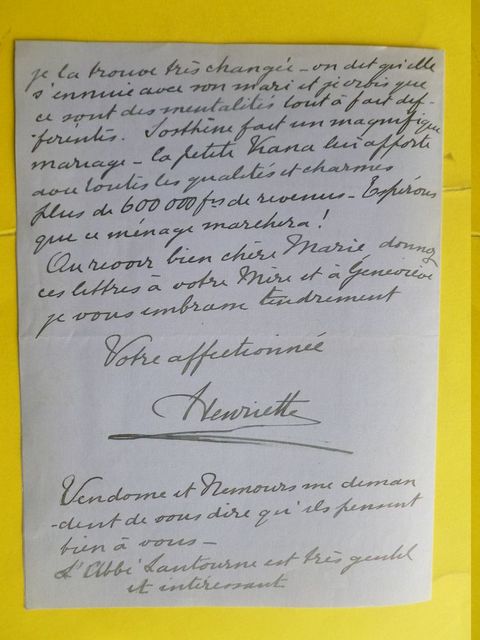 je la trouve très changée - on dit qu'elle
s'ennuie avec son mari et je crois que
ce sont des mentalités tout à fait dif-
-férentes. Sosthène fait un magnifique
mariage - la petite Viana lui apporte
avec toutes les qualités et charmes
plus de 600 000 frs de revenus - Espérons
que ce ménage marchera !
Au revoir bien chère Marie, donnez
ces lettres à votre Mère et à Geneviève
je vous embrasse tendrement
Votre affectionnée
Henriette
Vendome et Nemours me deman
-dent de vous dire qu'ils pensent
bien à vous -
L'Abbé Lantourne est très gentil
et intéressant